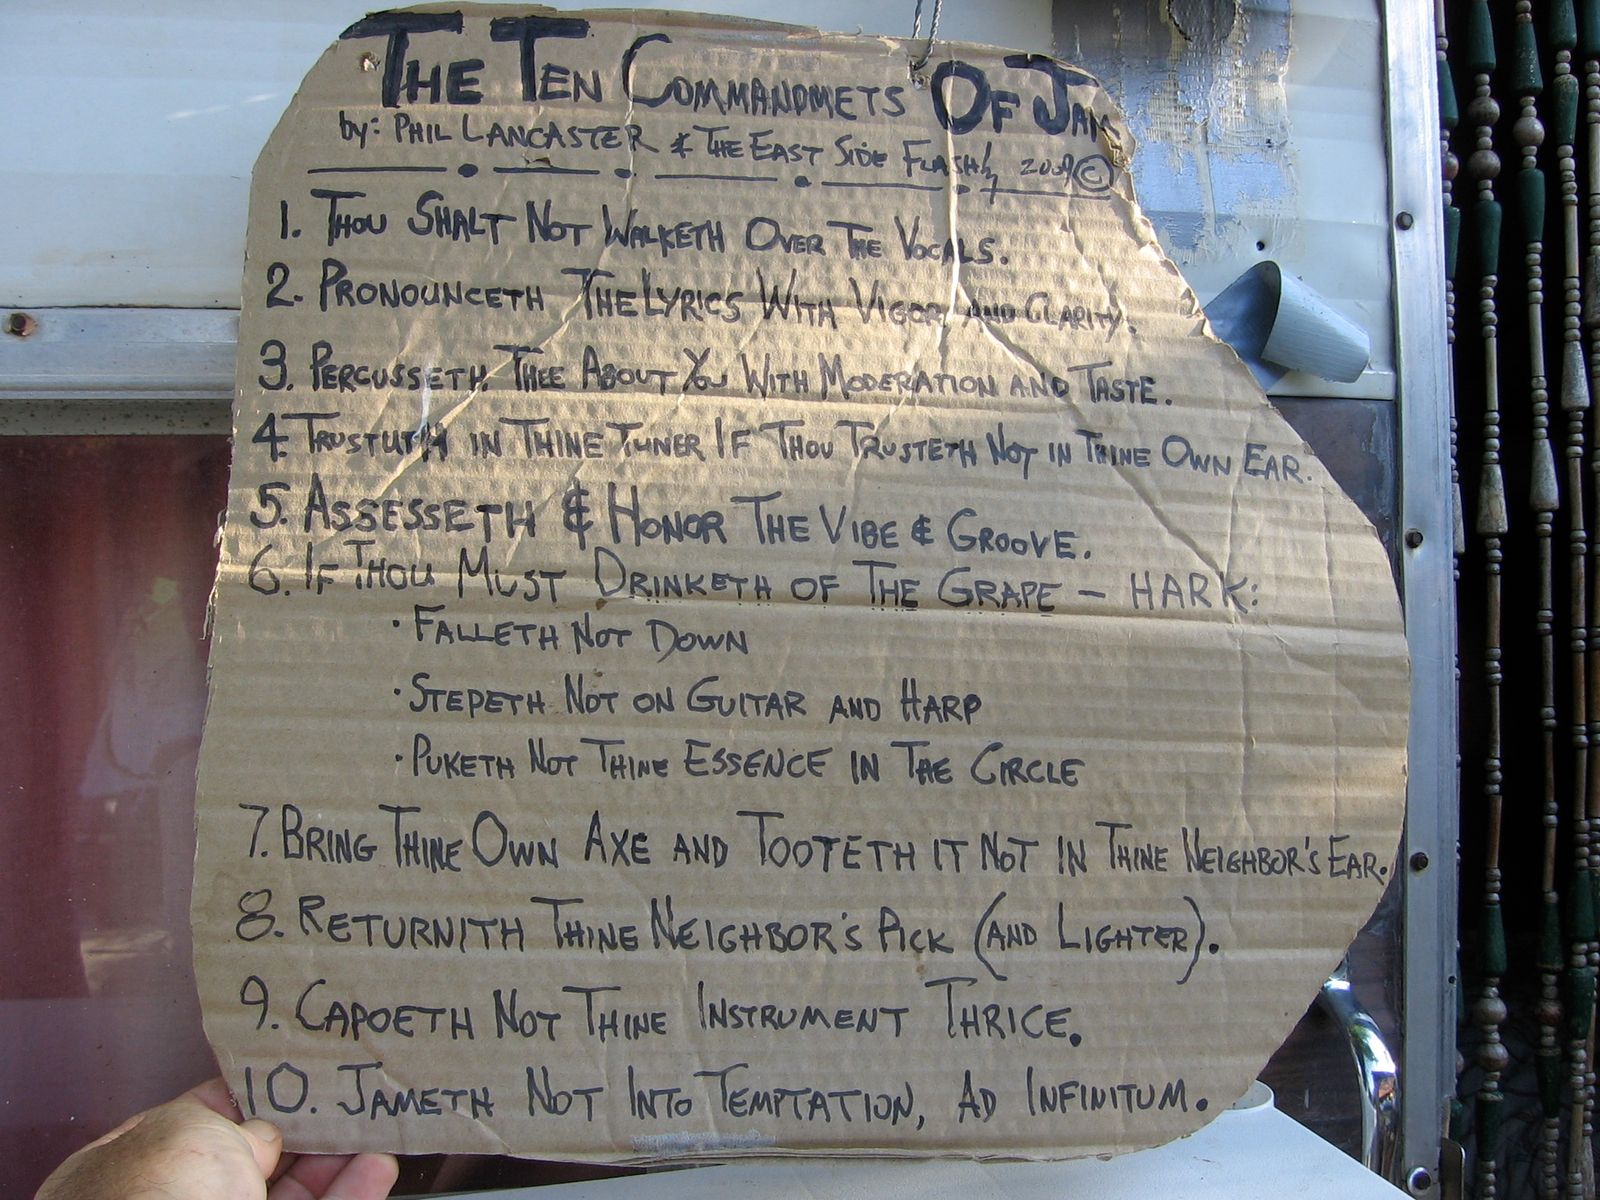 THE TEN COMMANDMETS OF JAM
by: PHIL LANCASTER & THE EAST SIDE FLASH ©
1. THOU SHALT NOT WALKETH OVER THE VOCALS.
2. PRONOUNCETH THE LYRICS WITH VIGOR AND CLARITY.
3. PERCUSSETH THEE ABOUT YOU WITH MODERATION AND TASTE.
4. IN THINE TUNER IF THOU TRUSTETH NOT IN THINE OWN EAR.
5. ASSESSETH & HONOR THE VIBE & GROOVE.
6. IF THOU MUST DRINKETH OF THE GRAPE - HARK:
· FALLETH NOT DOWN
· STEPETH NOT ON GUITAR AND HARP
· PUKETH NOT THINE ESSENCE IN THE CIRCLE
7. BRING THINE OWN AXE AND TOOTETH IT NOT IN THINE NEIGHBOR'S EAR.
8. RETURNITH THINE NEIGHBOR'S PICK (AND LIGHTER).
9. CAPOETH NOT THINE INSTRUMENT THRICE.
10. JAMETH NOT INTO TEMPTATION, AD INFINITUM.